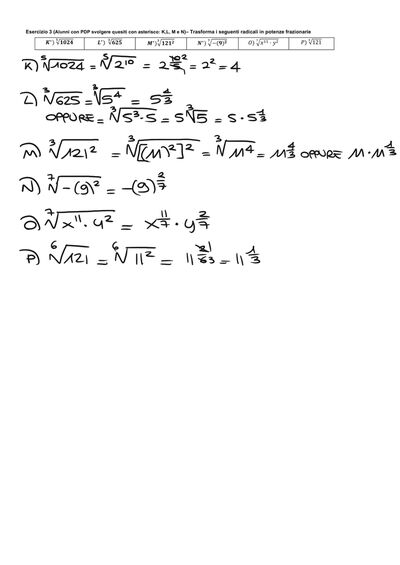 Esercizio 3 (Alunni con PDP svolgere quesiti con asterisco: K,L, M e N)– Trasforma i seguenti radicali in potenze frazionarie
K*) ⁵√1024 L*) ³√625 M*) ³√121² N*) ⁷√−(9)² O) ⁷√x¹¹·y² P) ⁶√121
K) ⁵√1024 = ⁵√2¹⁰ = 2^(10/5) = 2² = 4
L) ³√625 = ³√5⁴ = 5^(4/3)
OPPURE = ³√5³·5 = 5 ³√5 = 5·5^(1/3)
M) ³√121² = ³√[(11)²]² = ³√11⁴ = 11^(4/3) OPPURE 11·11^(1/3)
N) ⁷√−(9)² = −(9)^(2/7)
O) ⁷√x¹¹·y² = x^(11/7)·y^(2/7)
P) ⁶√121 = ⁶√11² = 11^(2/6) = 11^(1/3)